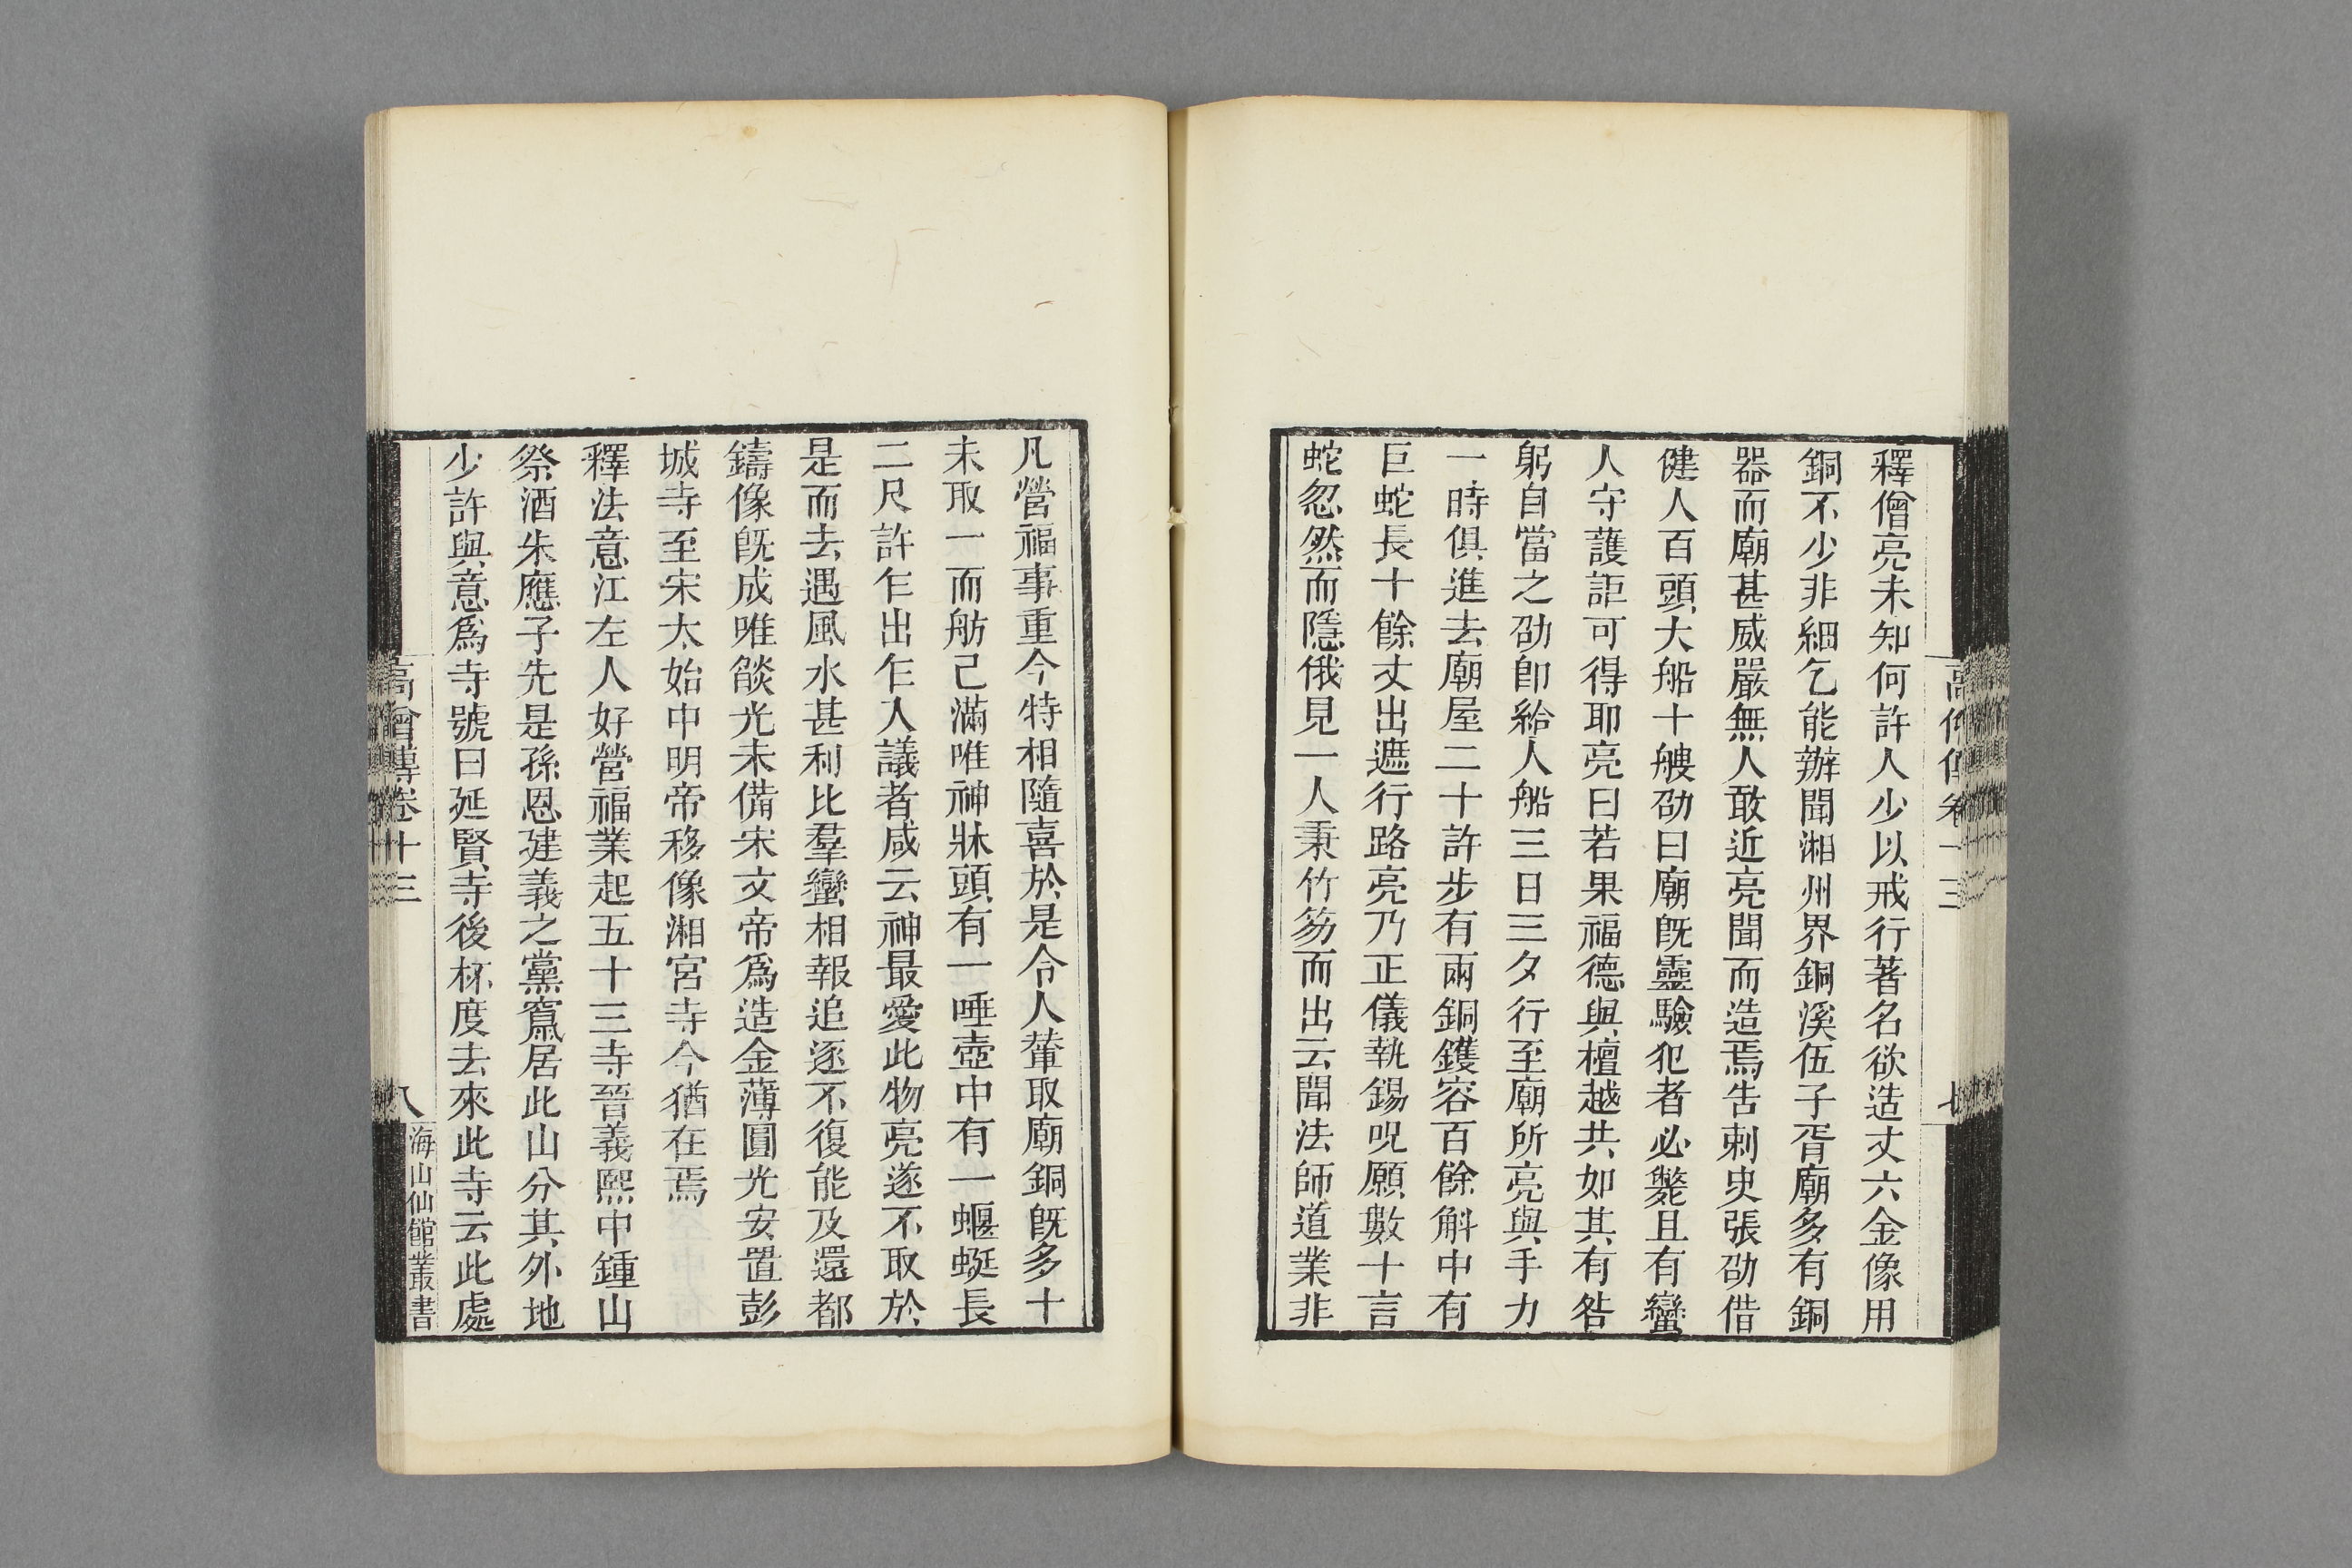 釋僧亮未知何許人少以戒行著名欲造丈六金像用
銅不少非細乞能辦聞湘州界銅溪伍子胥廟多有銅
器而廟甚威嚴無人敢近亮聞而造焉告刺史張劭借
健人百頭大船十艘劭曰廟旣靈驗犯者必斃且有蠻
人守護詎可得耶亮曰若果福德與檀越共如其有咎
躬自當之劭卽給人船三日三夕行至廟所亮與手力
一時俱進去廟屋二十許步有兩銅鑊容百餘斛中有
巨蛇長十餘丈出遮行路亮乃正儀執錫呪願數十言
蛇忽然而隱俄見一人秉竹笏而出云聞法師道業非
凡營福事重今特相隨喜於是令人輦取廟銅旣多十
未取一而舫己滿唯神牀頭有一唾壺中有一蝘蜓長
二尺許乍出乍入議者咸云神最愛此物亮遂不取於
是而去遇風水甚利比羣蠻相報追逐不復能及還都
鑄像旣成唯燄光未備宋文帝爲造金薄圓光安置彭
城寺至宋太始中明帝移像湘宮寺今猶在焉
釋法意江左人好營福業起五十三寺晉義熙中鍾山
祭酒朱應子先是孫恩建義之黨竄居此山分其外地
少許與意爲寺號曰延賢寺後杯度去來此寺云此處
高僧傳卷十三
八
海山仙館叢書